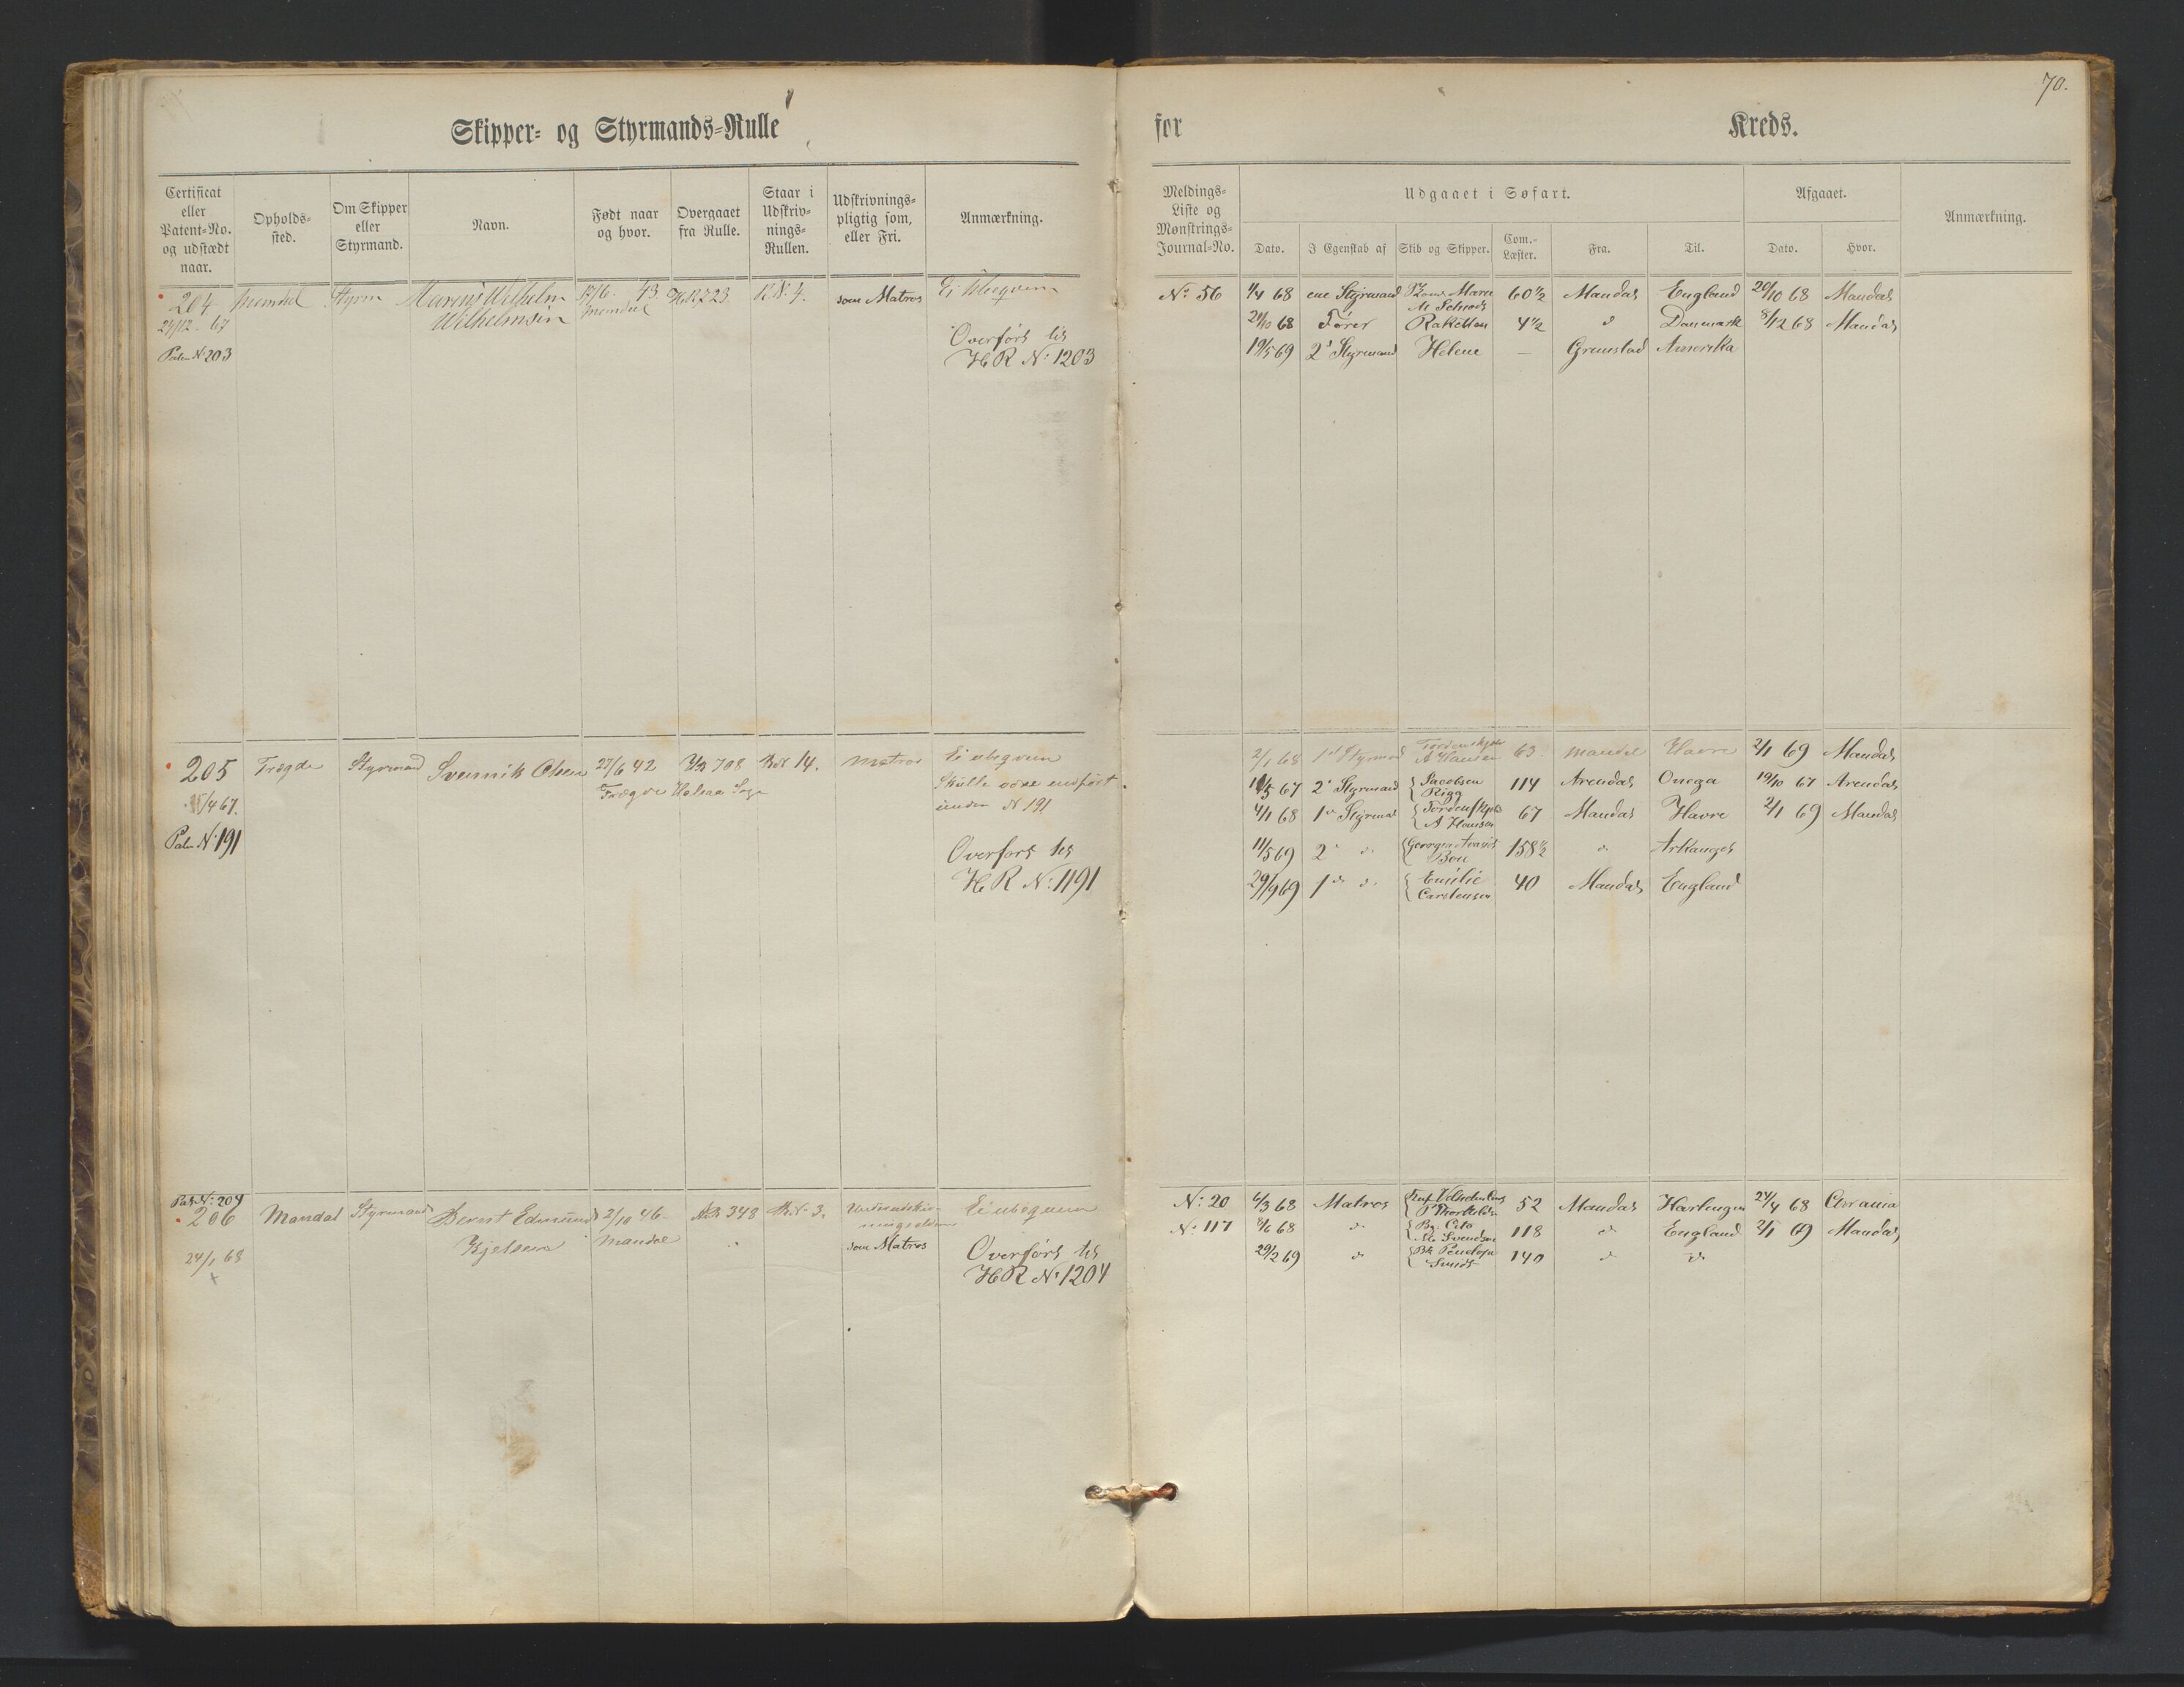 70.
Skipper- og Styrmands-Rulle
for
Kreds.
Certificat eller Patent-No. og udstædt naar.
Opholds-sted.
Om Skipper eller Styrmand.
Navn.
Født naar og hvor.
Overgaaet fra Rulle.
Staar i Udskriv-nings-Rullen.
Udskrivnings-pligtig som, eller Fri.
Anmærkning.
Meldings-Liste og Mønstrings-Journal-No.
Udgaaet i Søfart.
Afgaaet.
Anmærkning.
Dato.
I Egenskab af
Skib og Skipper.
Com.-Læster.
Fra.
Til.
Dato.
Hvor.
204 Mandal Styrm Marenş Wilhelm 17/6 43 HR 723 R.N. 4. som Matros Ei Ubeqvem
24/12 67 Wilhelmsen Mandal
Overført til
Patn N: 203
HR N: 1203
N: 56 1/4 68 ene Styrmand Maren 60 1/2 Mandal England 20/10 68 Mandal
M
21/10 68 Fører Raketten 4 1/2 d Danmark 8/12 68 Mandal
19/5 69 2d Styrmand Helene — Grimstad Amerika
205 Trægde Styrmand Svennik Olsen 27/6 42 HR 708 Rul 14. Matros Ei ubeqvem
15/4 67. Trægde Halsaa Sogn Skulle være indført
under N 191
Patn N: 191
Overført til
HR N: 1191
2/1 68 1st Styrmd Tordenskjold 63. Mandal Havre 2/1 69 Mandal
A Hansen
11/5 67 2d Styrmand Jacobsen 114 Arendal Onega 19/10 67 Arendal
Rigg
4/1 68 1st Styrmd Tordenskjold 67 Mandal Havre 2/1 69 Mandal
A Hansen
11/5 69 2d d 158 1/2 d Arkangel
Boe
29/9 69 1st d. Emilie 40 Mandal England
Carstensen
Patn N: 209
206 Mandal Styrmand Bernt Edmund 2/10 46 348 R.N. 3. Ei ubeqvem
Kjelsen Mandal som Matros
24/1 68
Overført til
HR N: 1204
N: 20 6/3 68 Matros 52 Mandal Harlingen 24/4 68
N: 117 8/6 68 d Bg: Cito 118 d England 2/1 69 Mandal
Svendsen
29/2 69 d Bk Penelope 140 d d
Smidt